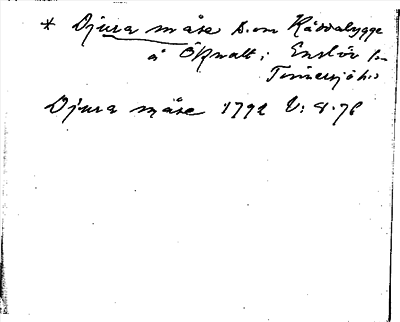 * Djura måse S.om Råssabygge
å Öknatt; Enslöv sn
Tönnersjö hd
Djura måse 1792 V: 8.76